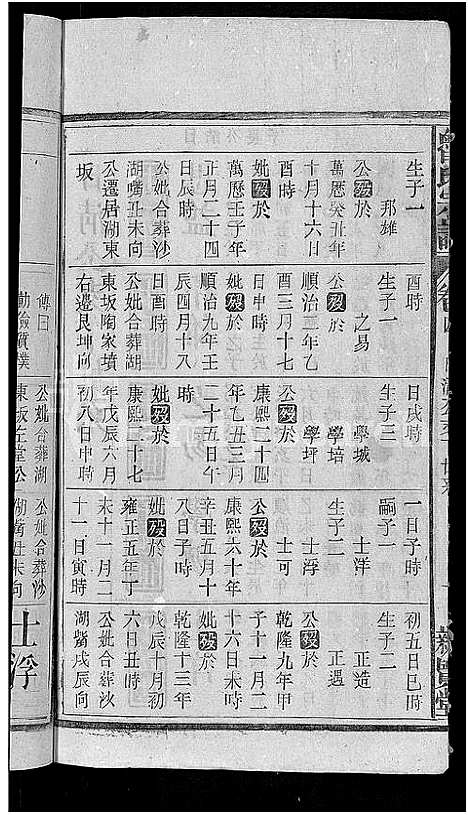 生子一
邦雄
公歿於
萬歷癸丑年
十月十六日
酉時
妣歿於
萬歷壬子年
正月二十四
日辰時
公妣合葬沙
湖嘴丑未向
公遷居湖東
坂
酉時
生子一
之易
公歿於
順治二年乙
酉三月十七
日申時
妣歿於
順治九年壬
辰四月十八
日酉時
公妣合葬湖
東坂陶家墳
右邊艮坤向
日戌時
生子三
學城
學培
學坪
公歿於
康熙二十四
年乙丑三月
二十五日午
時
妣歿於
康熙二十七
年戊辰六月
初八日申時
一日子時
嗣子一
士洋
生子二
士浮
士可
公歿於
康熙六十年
辛丑五月十
八日子時
妣歿於
雍正五年丁
未十一月二
十一日寅時
初五日巳時
生子二
正造
正遇
公歿於
乾隆九年甲
子十一月二
十六日未時
妣歿於
乾隆十三年
戊辰十月初
六日丑時
公妣合葬沙
湖嘴戌辰向
傳曰
勤儉質樸
公妣合葬湖
東坂左堂公
公妣合葬沙
湖嘴丑未向
士浮